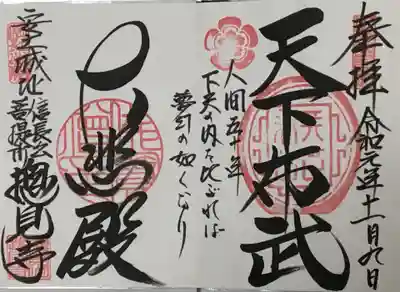 奉拝 令和元年十一月九日
天下布武
人間五十年
下天の内を比ぶれば
夢幻の如くなり
大悲殿
安土城址
信長公
菩提所
摠見寺